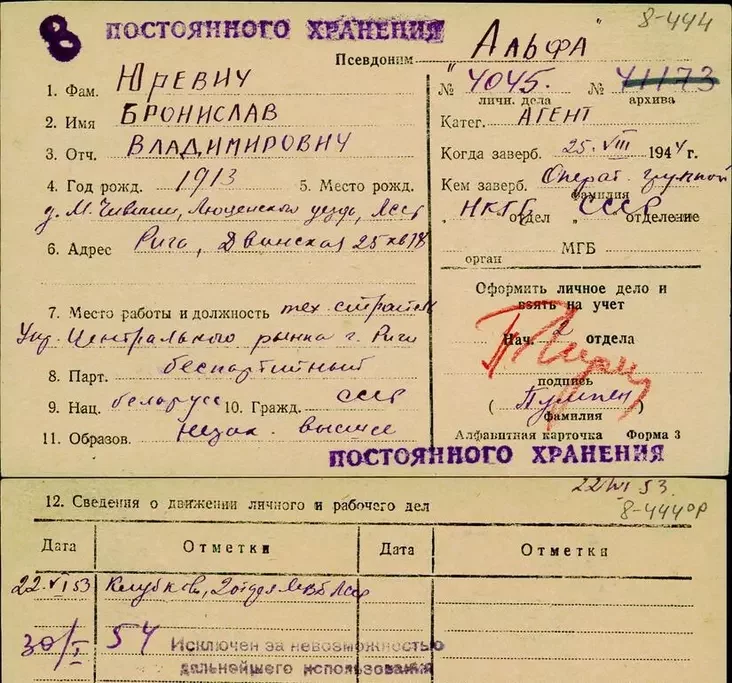 8 ПОСТОЯННОГО ХРАНЕНИЯ
8-444
Псевдоним "Альфа"
1. Фам. Юревич
2. Имя Бронислав
3. Отч. Владимирович
4. Год рожд. 1913 5. Место рожд.
Люценского уезда, Лсср
6. Адрес Рига, Двинская 25 кв 18
7. Место работы и должность тех.
Упр. Центрального рынка г. Риги
8. Парт. беспартийный
9. Нац. беларусс 10. Гражд. СССР
11. Образов. незак. высшее
№ 4045. № 41173
личн. дела архива
Катег. Агент
Когда заверб. 25. VIII 1944 г.
Кем заверб. Операт. группой
фамилия
" НКГБ отдел СССР отделение
МГБ
орган
Оформить личное дело и
взять на учет
Нач. 2 отдела
подпись
( )
фамилия
Алфавитная карточка Форма 3
ПОСТОЯННОГО ХРАНЕНИЯ
22/VI 53.
8-444 ор
12. Сведения о движении личного и рабочего дел
Дата Отметки Дата Отметки
22.VI 53 Клубков, 2 отдел МВД Лсср
30/I 54 Исключен за невозможностью
дальнейшего использования